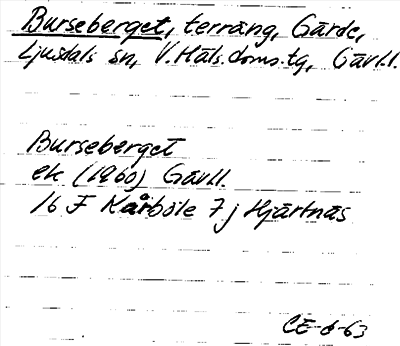 Burseberget, terräng, Gärde,
Ljusdals sn, V. Häls. doms.tg, Gävl.l.
Burseberget
ek (1960) Gävl.l.
16 F Kårböle 7 j Hjärtnäs
CE-6-63